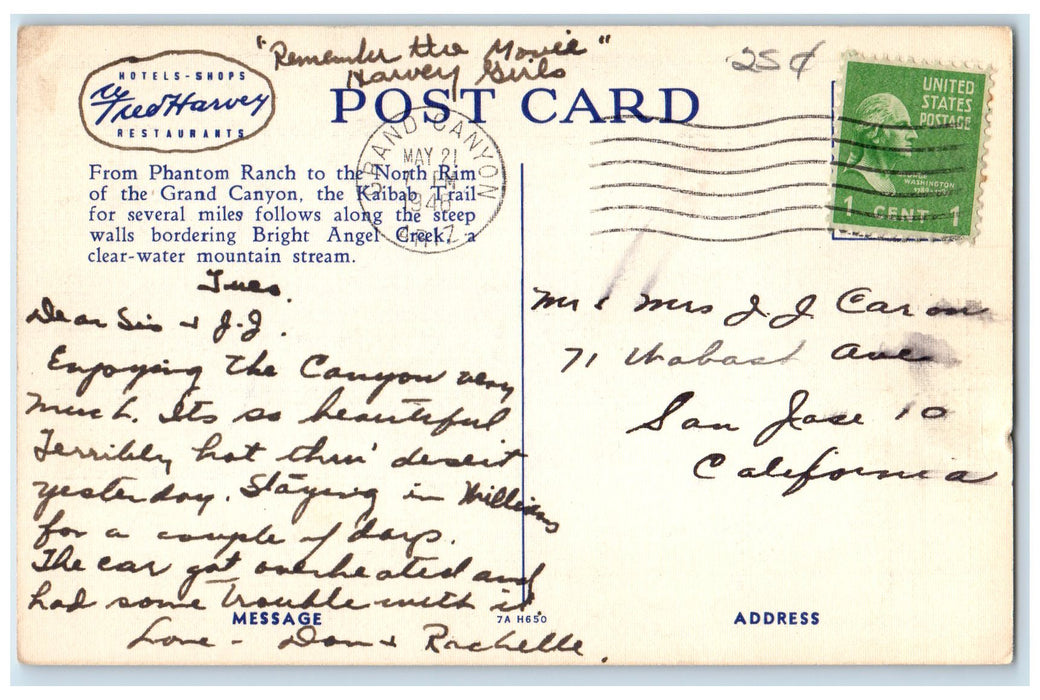 "Remember the Movie"
Harvey Girls
25¢
HOTELS - SHOPS
Fred Harvey
RESTAURANTS
POST CARD
UNITED
STATES
POSTAGE
GEORGE
WASHINGTON
1 CENT 1
GRAND CANYON
MAY 21
PM
ARIZ.
From Phantom Ranch to the North Rim
of the Grand Canyon, the Kaibab Trail
for several miles follows along the steep
walls bordering Bright Angel Creek, a
clear-water mountain stream.
Tues.
Dear Sis + J.J.
Enjoying the Canyon very
much. Its so beautiful
Terribly hot thru' desert
yesterday. Staying in Williams
for a couple of days.
The car got overheated and
had some trouble with it.
Love - Don + Rachelle.
Mr & Mrs J. J. Caron
71 Wabash Ave
San Jose 10
California
MESSAGE
7A H650
ADDRESS